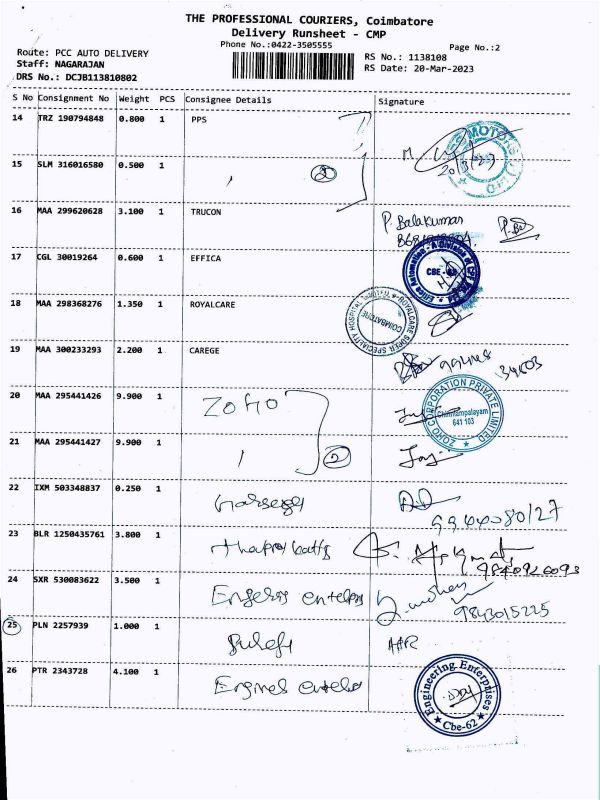 THE PROFESSIONAL COURIERS, Coimbatore
Delivery Runsheet - CMP
Phone No.:0422-3505555
Page No.:2
Route: PCC AUTO DELIVERY
Staff: NAGARAJAN
DRS No.: DCJB113810802
RS No.: 1138108
RS Date: 20-Mar-2023
S No Consignment No Weight PCS Consignee Details Signature
14 TRZ 190794848 0.800 1 PPS
MOTORS
20/3/23
15 SLM 316016580 0.500 1
2
16 MAA 299620628 3.100 1 TRUCON P. Balakumar
17 CGL 30019264 0.600 1 EFFICA
18 MAA 298368276 1.350 1 ROYALCARE
ROYALCARE SUPER SPECIALITY HOSPITAL
COIMBATORE
19 MAA 300233293 2.200 1 CAREGE
20 MAA 295441426 9.900 1 ZOHO
ZOHO CORPORATION PRIVATE LIMITED
Chinniampalayam
641 103
21 MAA 295441427 9.900 1
2
22 IXM 503348837 0.250 1
9944080127
23 BLR 1250435761 3.800 1
9840926093
24 SXR 530083622 3.500 1
9843015225
25 PLN 2257939 1.000 1
26 PTR 2343728 4.100 1
Engineering Enterprises
Cbe-62